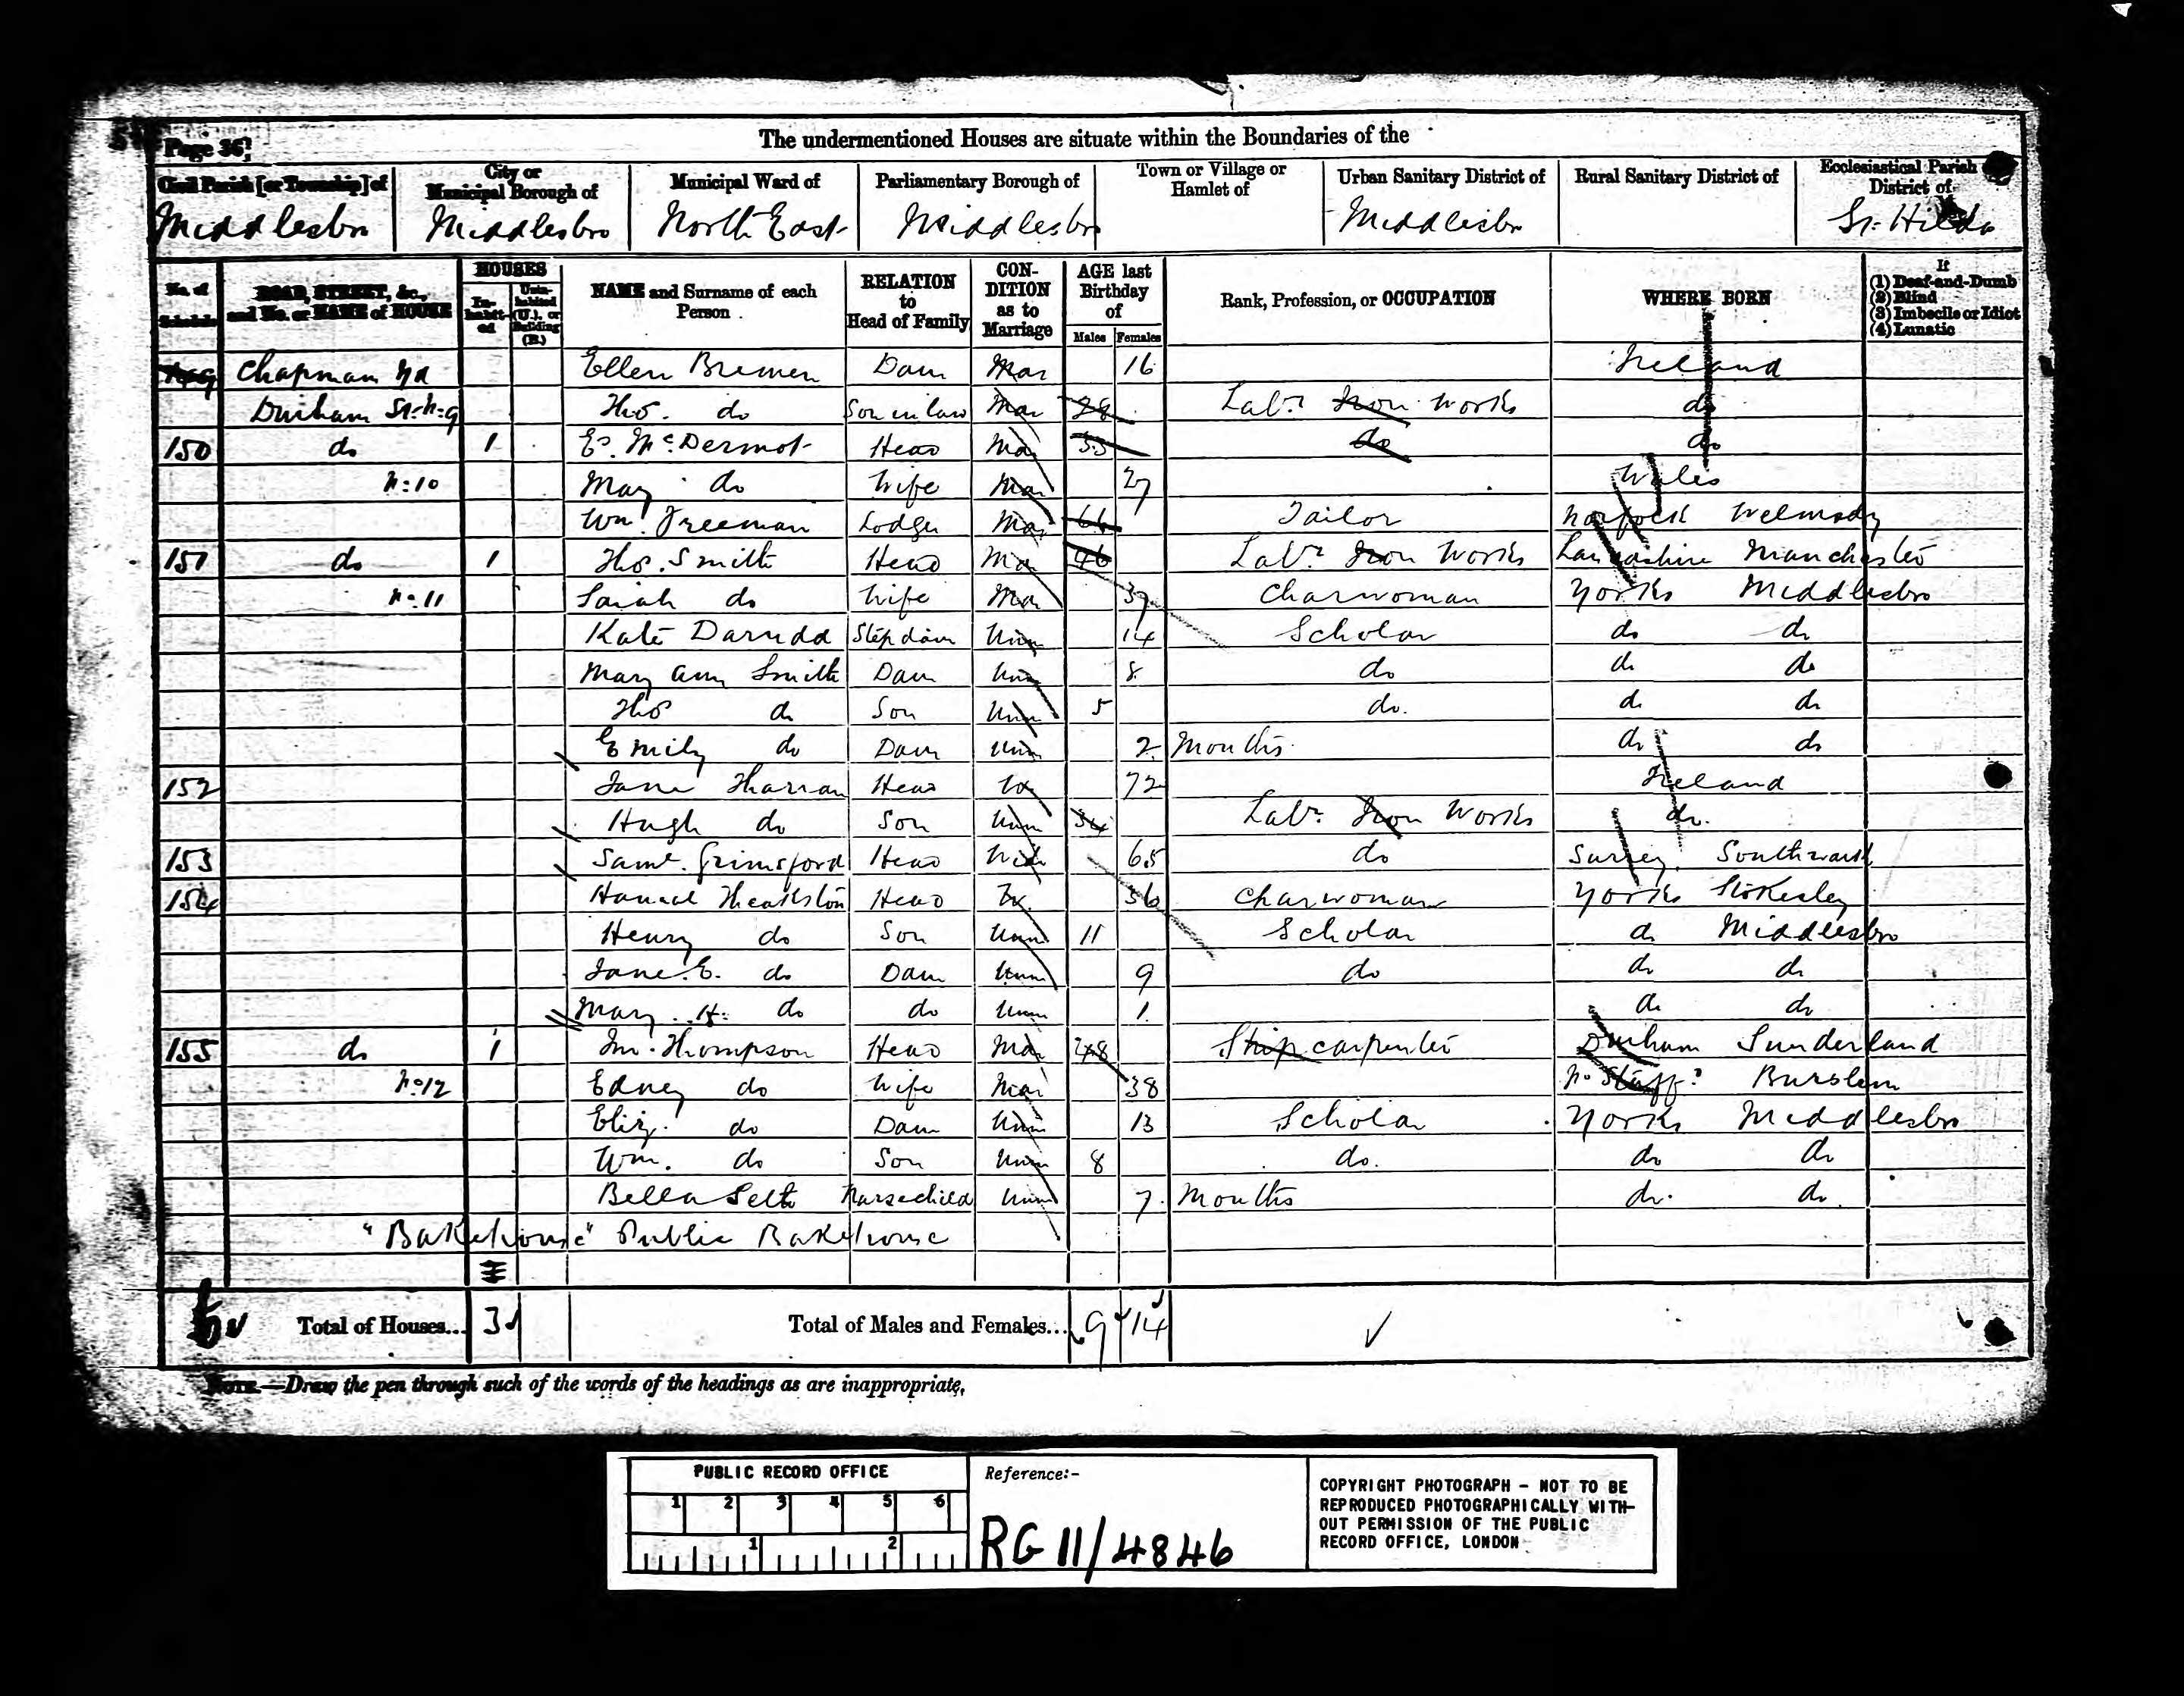 Page 36]
The undermentioned Houses are situate within the Boundaries of the
Civil Parish [or Township] of Middlesbro
City or Municipal Borough of Middlesbro
Municipal Ward of North East
Parliamentary Borough of Middlesbro
Town or Village or Hamlet of
Urban Sanitary District of Middlesbro
Rural Sanitary District of
Ecclesiastical Parish District of St. Hilda
No. of Schedule
ROAD, STREET, &c., and No. or NAME of HOUSE
HOUSES In-habit-ed Unin-habited (U.), or Building (B.)
NAME and Surname of each Person
RELATION to Head of Family
CON-DITION as to Marriage
AGE last Birthday of Males Females
Rank, Profession, or OCCUPATION
WHERE BORN
If (1) Deaf-and-Dumb (2) Blind (3) Imbecile or Idiot (4) Lunatic
149 Chapman Yd Ellen Bremen Daur Mar 16 Ireland
Durham St. No. 9 Tho. do Son in law Mar 28 Labr. Iron Works do
150 do 1 Ed. McDermot Head Mar do do
No. 10 Mary do Wife Mar 27 Wales
Wm. Freeman Lodger Mar Tailor Norfolk
151 do 1 Tho. Smith Head Mar 46 Labr. Iron Works Lancashire Manchester
No. 11 Sarah do Wife Mar 37 Charwoman Yorks Middlesbro
Kate Stepdaur Unm 14 Scholar do do
Mary Ann Smith Daur Unm 8 do do do
Tho do Son Unm 5 do. do do
Emily do Daur Unm 2 Months do do
152 Jane Head W 72 Ireland
Hugh do Son Unm 34 Labr. Iron Works do.
153 Saml. Grimsford Head Wid 65 do Surrey Southwark
154 Head W 36 Charwoman Yorks Stokesley
Henry do Son Unm 11 Scholar do Middlesbro
Jane E. do Daur Unm 9 do do do
Mary H. do do Unm 1 do do
155 do 1 Jno. Thompson Head Mar 48 Ship carpenter Durham Sunderland
No. 12 Edney do Wife Mar 38 No. Staff. Burslem
Eliz. do Daur Unm 13 Scholar Yorks Middlesbro
Wm. do Son Unm 8 do. do do
Bella Nursechild Unm 7 Months do. do
"Bakehouse" Public Bakehouse
Total of Houses... 3
Total of Males and Females... 9 14
NOTE.—Draw the pen through such of the words of the headings as are inappropriate.
PUBLIC RECORD OFFICE
1 2 3 4 5 6
1 2
Reference:-
RG 11/4846
COPYRIGHT PHOTOGRAPH - NOT TO BE
REPRODUCED PHOTOGRAPHICALLY WITH-
OUT PERMISSION OF THE PUBLIC
RECORD OFFICE, LONDON